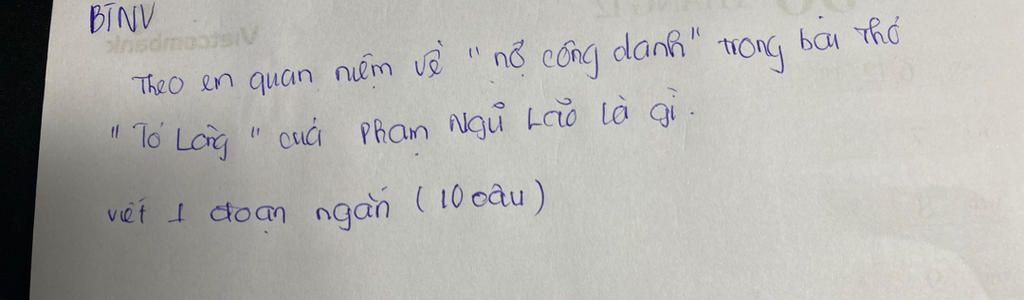 BTNV
Theo em quan niệm về "nợ công danh" trong bài thơ
"Tỏ Lòng" của Phạm Ngũ Lão là gì.
viết 1 đoạn ngắn (10 câu)